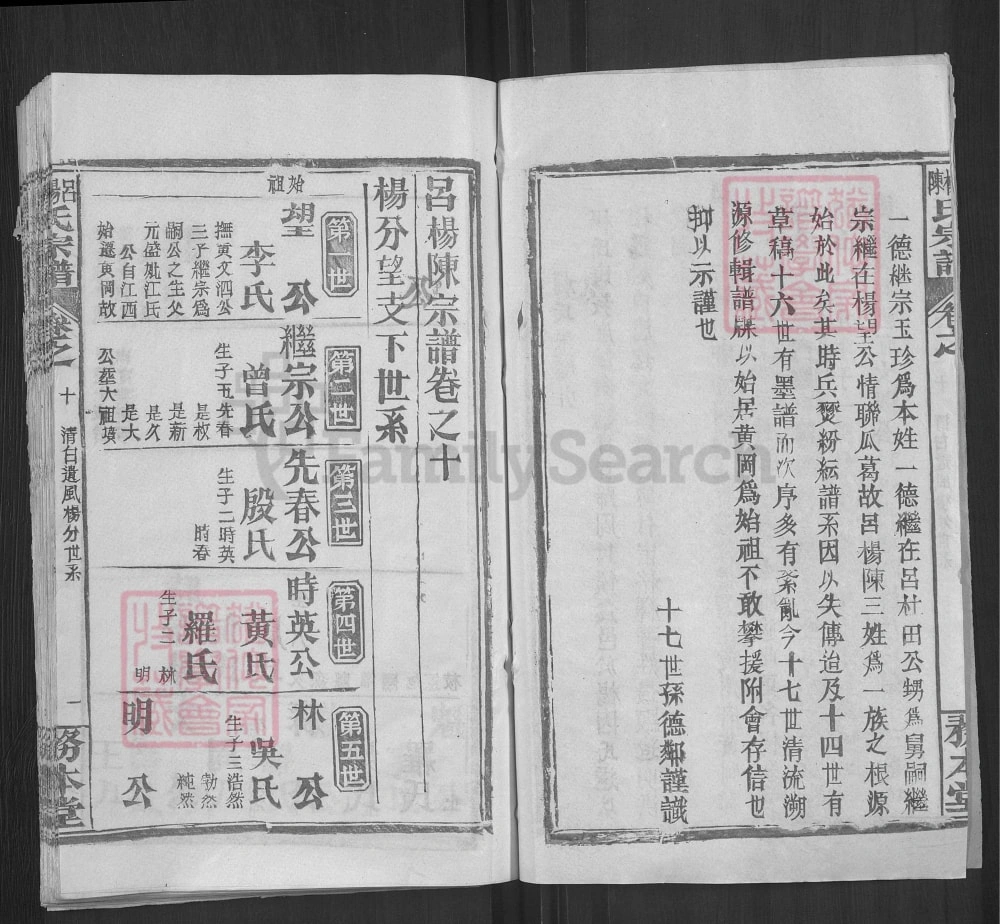 一德繼宗玉珍爲本姓一德繼在呂杜田公甥爲舅嗣繼
宗繼在楊望公情聯瓜葛故呂楊陳三姓爲一族之根源
始於此矣其時兵燹紛紜譜系因以失傳迨及十四世有
草稿十六世有墨譜而次序多有紊亂今十七世清流溯
源修輯譜牒以始居黃岡爲始祖不敢攀援附會存信也
卽以示謹也
十七世孫德鄰謹識
呂楊陳宗譜卷之十
楊分望支下世系
第一世
始祖
望公
李氏
撫黃文泗公
三子繼宗爲
嗣公之生父
元盛妣江氏
公自江西
始遷黃岡故
第二世
繼宗公
曾氏
生子五先春
是权
是新
是久
是大
公塟大祖墳
第三世
先春公
殷氏
生子二時英
時春
第四世
時英公
黃氏
羅氏
生子二林
明
第五世
林公
吳氏
生子三浩然
勃然
純然
明公
氏宗譜
卷之
十
清白遺風楊分世系
一
務本堂
FamilySearch